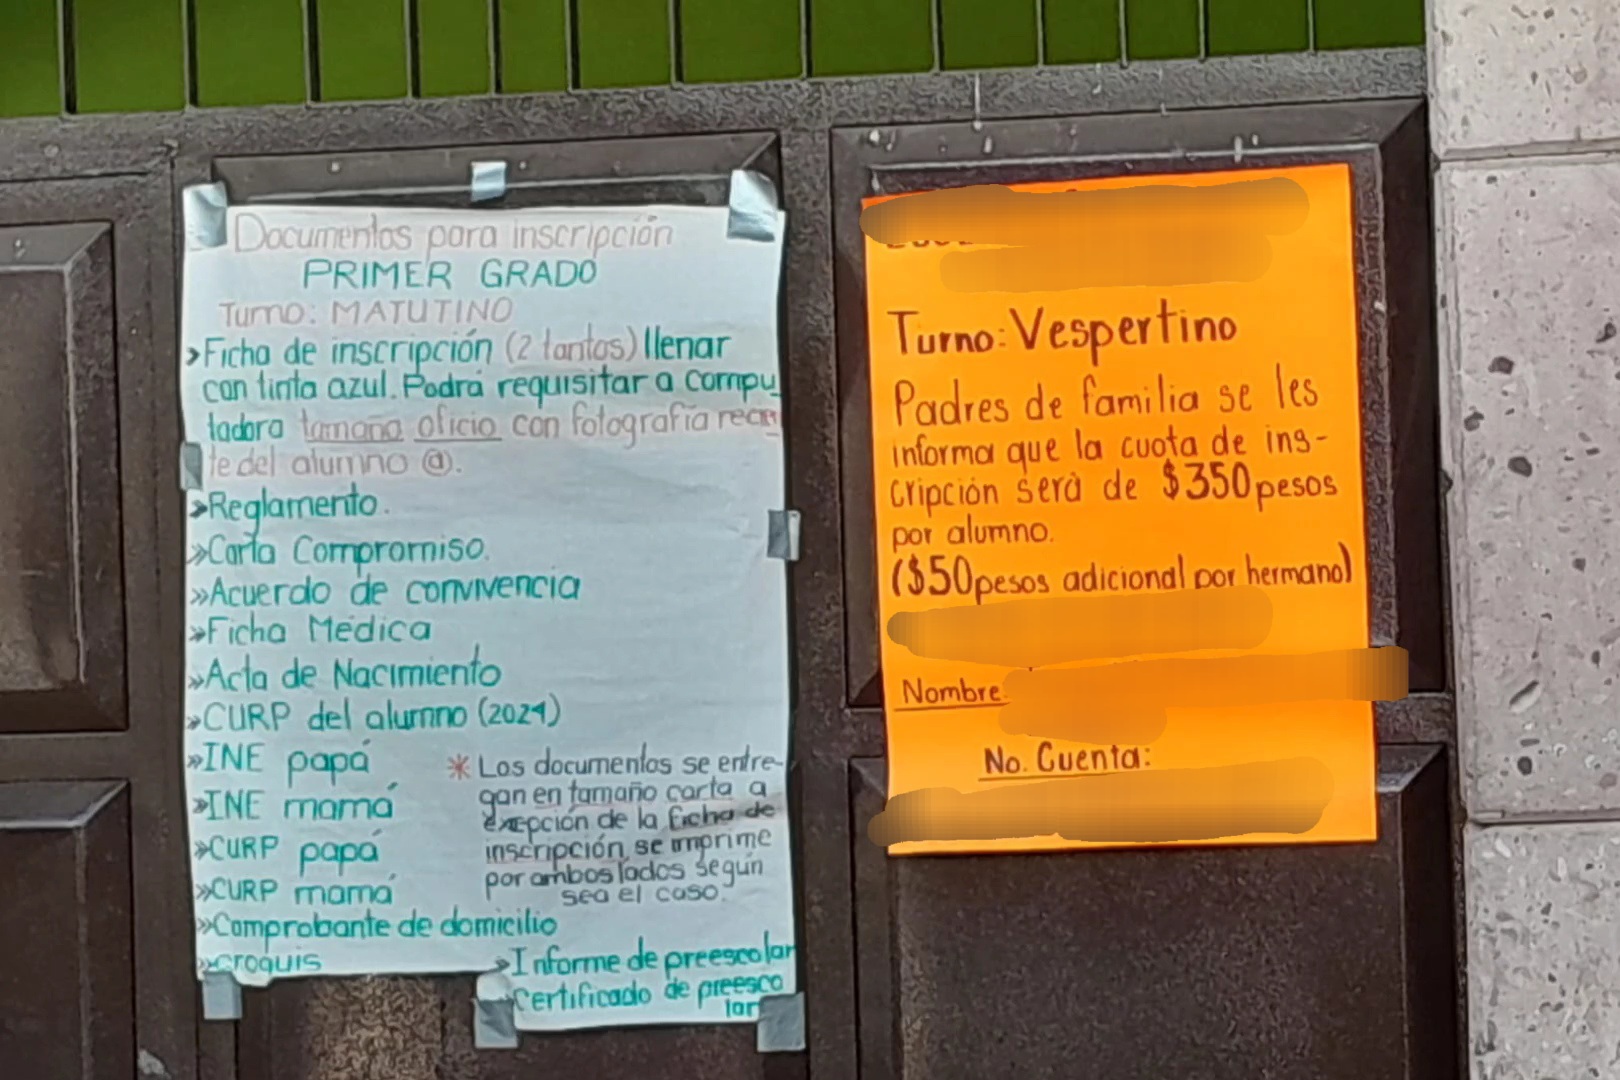 Documentos para inscripción
PRIMER GRADO
Turno: MATUTINO
»Ficha de inscripción (2 tantos) llenar
con tinta azul. Podrá requisitar a compu-
tadora tamaño oficio con fotografía recien
te del alumno @.
»Reglamento.
»Carta Compromiso.
»Acuerdo de convivencia
»Ficha Médica
»Acta de Nacimiento
»CURP del alumno (2024)
»INE papá
»INE mamá
»CURP papá
»CURP mamá
»Comprobante de domicilio
»croquis
* Los documentos se entre-
gan en tamaño carta a
exepción de la ficha de
inscripción se imprime
por ambos lados según
sea el caso.
»Informe de preescolar
»Certificado de preesco
lar
Turno: Vespertino
Padres de familia se les
informa que la cuota de ins-
cripción será de $350 pesos
por alumno.
($50 pesos adicional por hermano)
Nombre:
No. Cuenta: